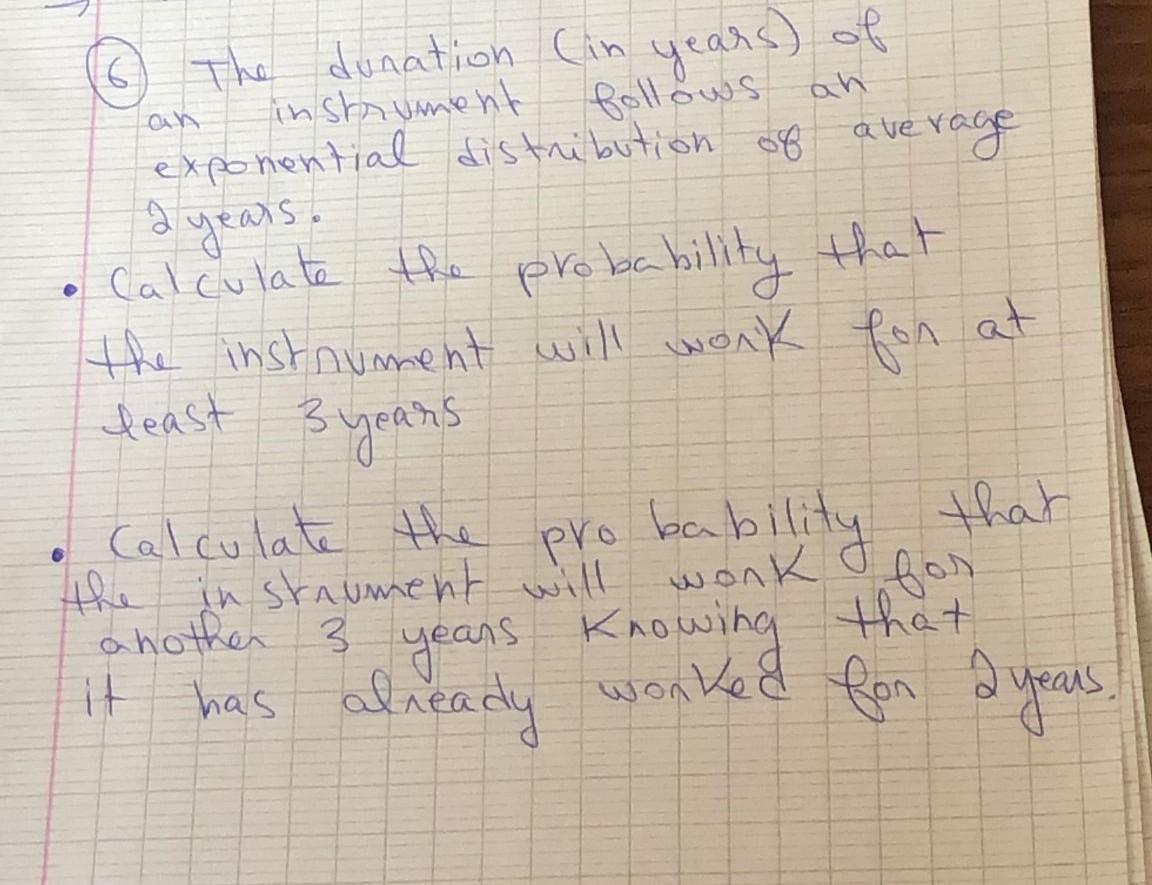 6 The duration (in years) of
an instrument follows an
exponential distribution of average
2 years.
• Calculate the probability that
the instrument will work for at
least 3 years
• Calculate the probability that
the instrument will work for
another 3 years knowing that
it has already worked for 2 years.